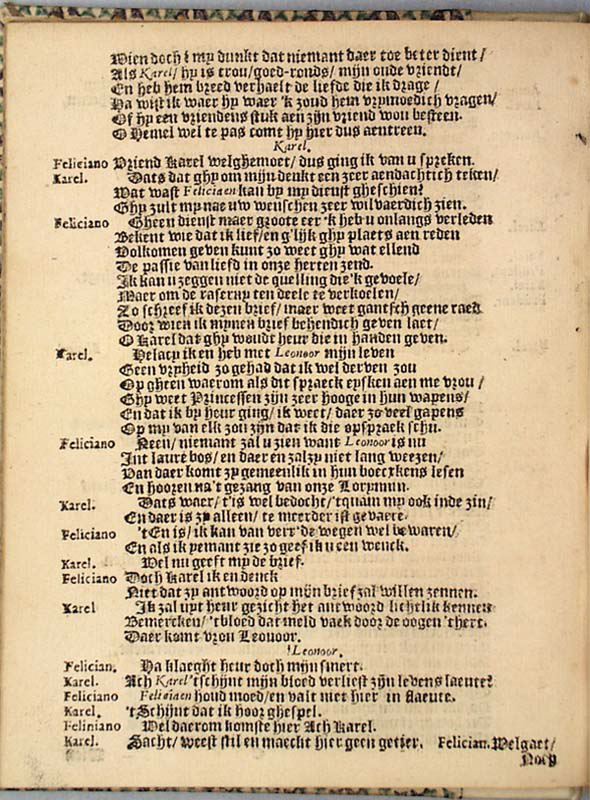 Wien doch? my dunkt dat niemant daer toe beter dient/
Als Karel/ hy is trou/ goed-ronds/ mijn oude vriendt/
En heb hem breed verhaelt de liefde die ik drage/
Ha wist ik waer hy waer 'k zoud hem vrymoedich vragen/
Of hy een vriendens stuk aen zijn vriend wou besteen.
O Hemel wel te pas comt hy hier dus aentreen.
Karel.
Feliciano Vriend Karel welghemoet/ dus ging ik van u spreken.
Karel. Dats dat ghy om mijn denkt een zeer aendachtich teken/
Wat wast Feliciaen kan by my dienst gheschien?
Ghy zult my nae uw wenschen zeer wilvaerdich zien.
Feliciano Gheen dienst maer groote eer 'k heb u onlangs verleden
Bekent wie dat ik lief/ en g'lijk ghy plaets aen reden
Volkomen geven kunt zo weet ghy wat ellend
De passie van liefd in onze herten zend.
Ik kan u zeggen niet de quelling die 'k gevoele/
Maer om de raserny ten deele te verkoelen/
Zo schreef ik dezen brief/ maer weet gantsch geene raed
Door wien ik mynen brief behendich geven laet/
O Karel dat ghy woudt heur die in handen geven.
Karel. Helacy ik en heb met Leonoor mijn leven
Geen vryheid zo gehad dat ik wel derven zou
Op gheen waerom als dit spraeck eysken aen me vrou/
Ghy weet Princessen zijn zeer hooge in hun wapens/
En dat ik by heur ging/ ik weet/ daer zo veel gapens
Op my van elk zou zijn dat ik die opspraek schu.
Feliciano Neen/ niemant zal u zien want Leonoor is nu
Int laure bos/ en daer en zal zy niet lang weezen/
Van daer komt zy gemeenlik in hun boecrkens lesen
En hooren na't gezang van onze Lorymun.
Karel. Dats waer/ t'is wel bedocht/ 'tquam my ook inde zin/
En daer is zy alleen/ te meerder ist gevaere.
Feliciano 't En is/ ik kan van verr' de wegen wel bewaren/
En als ik yemant zie zo geef ik u een wenck.
Karel. Wel nu geeft my de brief.
Feliciano Doch Karel ik en denck
Niet dat zy antwoord op mijn brief zal willen zennen.
Karel Ik zal uyt heur gezicht het antwoord lichtlik kennen
Bemercken/ 'tbloed dat meld vaek door de oogen 'thert.
Daer komt vrou Leonoor.
Leonoor.
Felician. Ha klaeght heur doch mijn smert.
Karel. Ach Karel 'tschijnt mijn bloed verliest zijn levens laeute?
Feliciano Feliciaen houd moed/ en valt niet hier in flaeute.
Karel. 't Schijnt dat ik hoor ghespel.
Feliniano Wel daerom komste hier Ach Karel.
Karel. Sacht/ weest stil en maeckt hier geen getier. Felician. Welgaet/
Noch